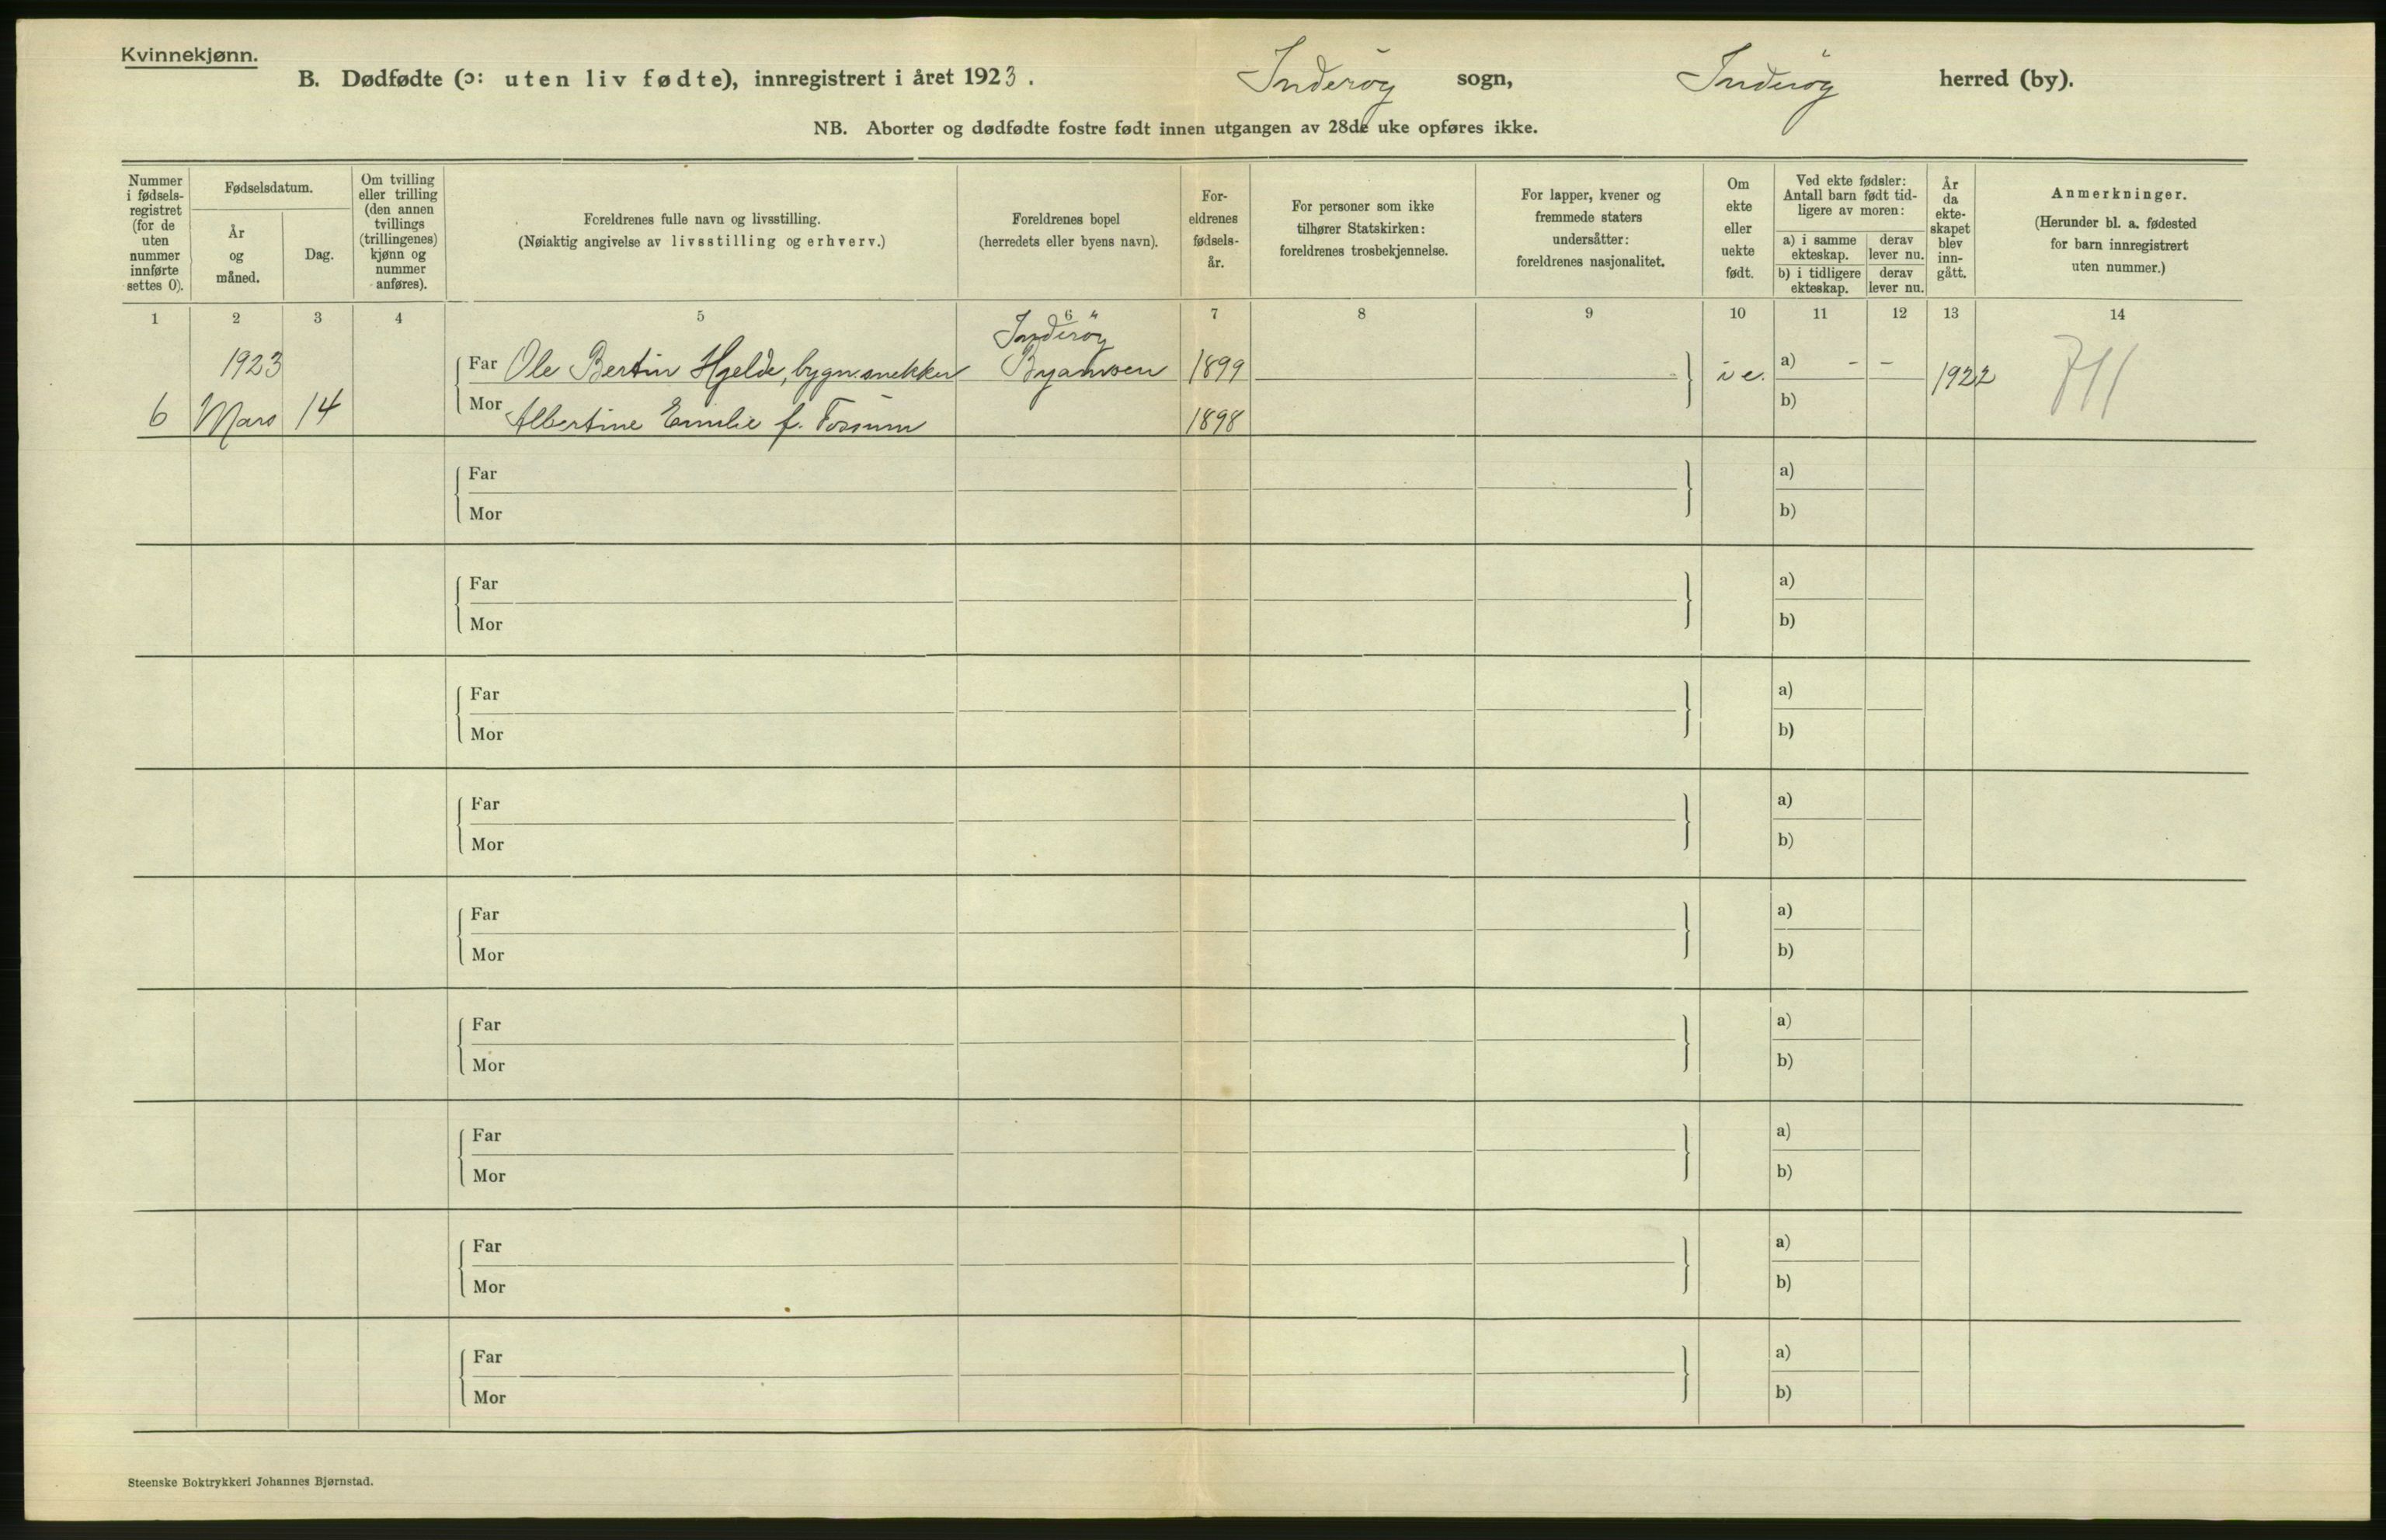 Kvinnekjønn.
B. Dødfødte (ɔ: uten liv fødte), innregistrert i året 1923. Inderöy sogn, Inderöy herred (by).
NB. Aborter og dødfødte fostre født innen utgangen av 28de uke opføres ikke.
Nummer
i fødsels-
registret
(for de
uten
nummer
innførte
settes 0).
Fødselsdatum.
År
og
måned.
Dag.
Om tvilling
eller trilling
(den annen
tvillings
(trillingenes)
kjønn og
nummer
anføres).
Foreldrenes fulle navn og livsstilling.
(Nøiaktig angivelse av livsstilling og erhverv.)
Foreldrenes bopel
(herredets eller byens navn).
For-
eldrenes
fødsels-
år.
For personer som ikke
tilhører Statskirken:
foreldrenes trosbekjennelse.
For lapper, kvener og
fremmede staters
undersåtter:
foreldrenes nasjonalitet.
Om
ekte
eller
uekte
født.
Ved ekte fødsler:
Antall barn født tid-
ligere av moren:
a) i samme
ekteskap.
derav
lever nu.
b) i tidligere
ekteskap.
derav
lever nu.
År
da
ekte-
skapet
blev
inn-
gått.
Anmerkninger.
(Herunder bl. a. fødested
for barn innregistrert
uten nummer.)
1 2 3 4 5 6 7 8 9 10 11 12 13 14
Inderöy
1923 Far Ole Bertin Hjelde, bygn.snekker 1899 i e. a) - - 1922
6 Mars 14 Mor Albertine Emilie f. Fossum 1898 b)
Far a)
Mor b)
Far a)
Mor b)
Far a)
Mor b)
Far a)
Mor b)
Far a)
Mor b)
Far a)
Mor b)
Far a)
Mor b)
Far a)
Mor b)
Far a)
Mor b)
Steenske Boktrykkeri Johannes Bjørnstad.